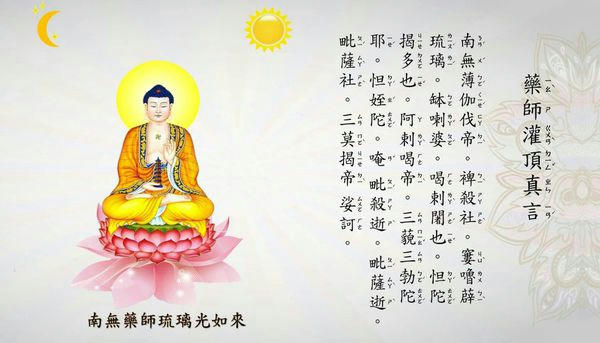 藥師灌頂真言
南無薄伽伐帝。裨殺社。窶嚕薜
琉璃。缽喇婆。喝剌闍也。怛陀
揭多也。阿剌喝帝。三藐三勃陀
耶。怛姪陀。唵 毗殺逝。毗薩逝。
毗薩社。三莫揭帝 娑訶。
南無藥師琉璃光如來